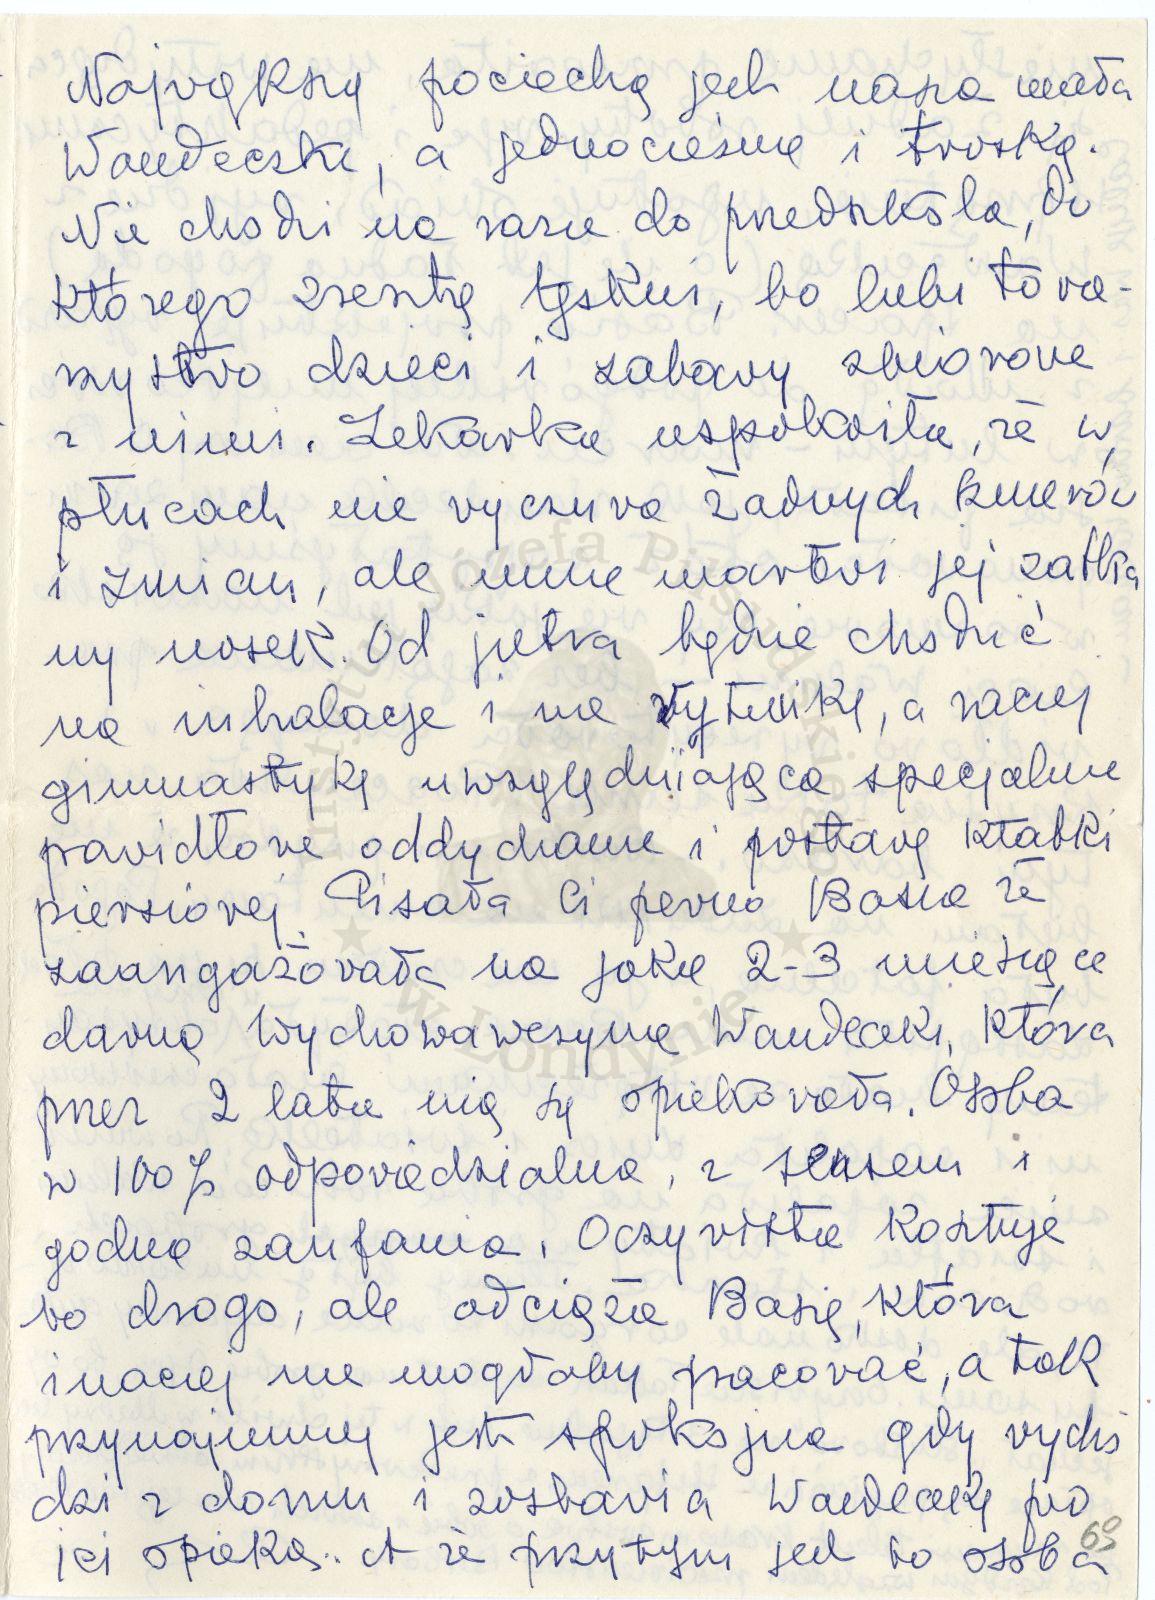 Największą pociechą jest nasza mała
Wandeczka, a jednocześnie i troską.
Nie chodzi na razie do przedszkola, do
którego zresztą tęskni, bo lubi towa-
rzystwo dzieci i zabawy zbiorowe
z nimi. Lekarka uspokoiła, że w
płucach nie wyczuwa żadnych szmerów
i zmian, ale mnie martwi jej zatka
ny nosek. Od jutra będzie chodzić
na inhalacje i na rytmikę, a raczej
gimnastykę uwzględniającą specjalnie
prawidłowe oddychanie i postawę klatki
piersiowej. Pisała Ci pewno Basia że
zaangażowała na jakie 2-3 miesiące
dawną wychowawczynię Wandeczki, która
przez 2 lata nią się opiekowała. Osoba
w 100% odpowiedzialna, z sensem i
godna zaufania. Oczywiście kosztuje
to drogo, ale odciąża Basię, która
inaczej nie mogłaby pracować, a tak
przynajmniej jest spokojna gdy wycho
dzi z domu i zostawia Wandeczkę pod
jej opieką.. A że przytym jest to osoba
63
Instytut Józefa Piłsudskiego
w Londynie